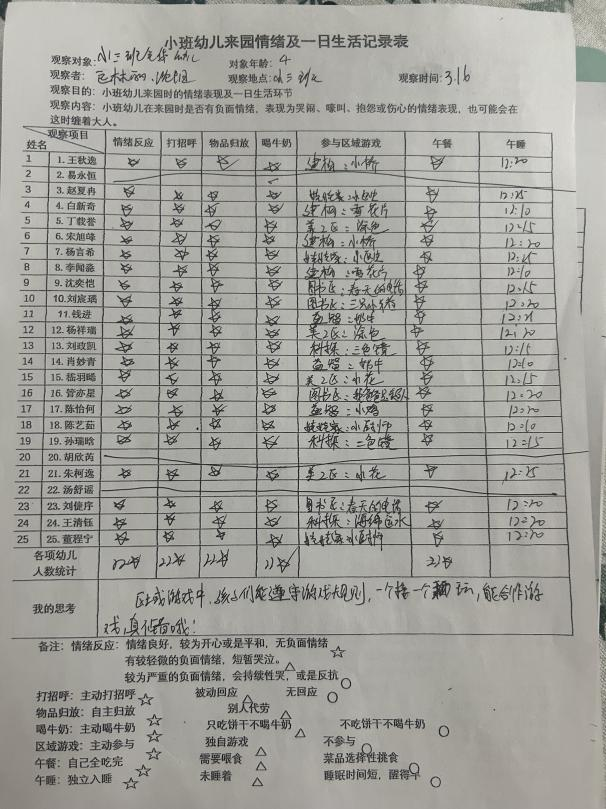 小班幼儿来园情绪及一日生活记录表
观察对象:小二班全体幼儿 对象年龄:4
观察者: 观察地点:小二班 观察时间:3.16
观察目的:小班幼儿来园时的情绪表现及一日生活环节
观察内容:小班幼儿在来园时是否有负面情绪,表现为哭闹、嚎叫、抱怨或伤心的情绪表现,也可能会在
这时缠着大人。
观察项目 姓名 情绪反应 打招呼 物品归放 喝牛奶 参与区域游戏 午餐 午睡
1 1.王秋逸 ☆ ☆ ☆ ☆ 建构:小桥 ☆ 12:20
2 2.易永恒
3 3.赵夏冉 ☆ ☆ ☆ ☆ ☆ 12:25
4 4.白新奇 ☆ ☆ ☆ ☆ 建构:雪花片 ☆ 12:10
5 5.丁载誉 ☆ ☆ ☆ ☆ 美工区:涂色 ☆ 12:15
6 6.宋旭峰 ☆ ☆ ☆ ☆ 建构:小桥 ☆ 12:20
7 7.杨言希 ☆ ☆ ☆ ☆ ☆ 12:25
8 8.李闻淼 ☆ ☆ ☆ ☆ 建构:雪花片 ☆ 12:10
9 9.沈奕恺 ☆ ☆ ☆ ☆ 图书区:春天的电话 ☆ 12:15
10 10.刘宸瑀 ☆ ☆ ☆ ☆ 图书区:三只小猪 ☆ 12:20
11 11.钱进 ☆ ☆ ☆ ☆ 益智:奶牛 ☆
12 12.杨祥瑞 ☆ ☆ ☆ ☆ 美工区:涂色 ☆ 12:20
13 13.刘政凯 ☆ ☆ ☆ ☆ 科探:三色镜 ☆ 12:15
14 14.肖妙青 ☆ ☆ ☆ ☆ 益智:奶牛 ☆ 12:10
15 15.嵇羽晞 ☆ ☆ ☆ ☆ 美工区:小花 ☆ 12:15
16 16.管亦星 ☆ ☆ ☆ ☆ 图书区: ☆ 12:20
17 17.陈怡何 ☆ ☆ ☆ ☆ 益智:小鸡 ☆ 12:20
18 18.陈艺茹 ☆ ☆ ☆ ☆ 娃娃家:小厨师 ☆ 12:10
19 19.孙瑞晗 ☆ ☆ ☆ ☆ 科探:三色镜 ☆ 12:15
20 20.胡欣芮
21 21.朱柯逸 ☆ ☆ ☆ ☆ 美工区:小花 ☆ 12:25
22 22.汤舒谣
23 23.刘倢序 ☆ ☆ ☆ ☆ 图书区:春天的电话 ☆ 12:20
24 24.王清钰 ☆ ☆ ☆ ☆ 科探:海绵吸水 ☆ 12:20
25 25.董程宁 ☆ ☆ ☆ ☆ 娃娃家:小厨师 ☆ 12:20
各项幼儿人数统计 22☆ 22☆ 22☆ 22☆ 22☆
我的思考 区域游戏中,孩子们能遵守游戏规则,一个接一个玩,能合作游
戏,真能干哦!
备注:情绪反应:情绪良好,较为开心或是平和,无负面情绪 ☆
有较轻微的负面情绪,短暂哭泣。 △
较为严重的负面情绪,会持续性哭,或是反抗 ○
打招呼:主动打招呼 ☆ 被动回应 △ 无回应 ○
物品归放:自主归放 ☆ 别人代劳 △
喝牛奶:主动喝牛奶 ☆ 只吃饼干不喝牛奶 △ 不吃饼干不喝牛奶 ○
区域游戏:主动参与 ☆ 独自游戏 △ 不参与 ○
午餐:自己全吃完 ☆ 需要喂食 △ 菜品选择性挑食 ○
午睡:独立入睡 ☆ 未睡着 △ 睡眠时间短,醒得早 ○